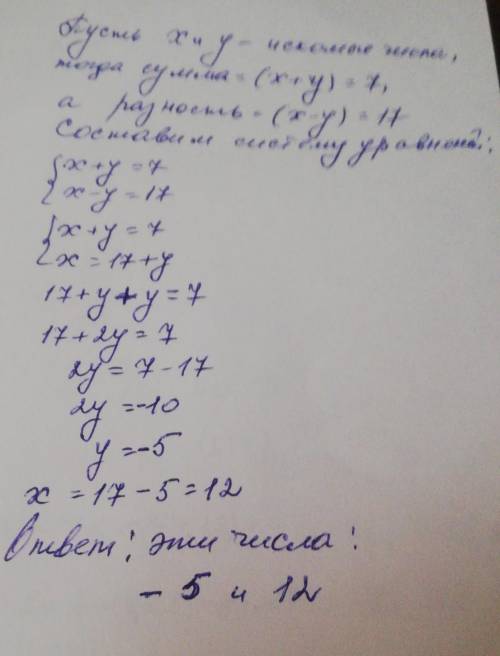 Пусть x и y - искомые числа,
тогда сумма = (x+y) = 7,
а разность = (x-y) = 17
Составим систему уравнений:
{x+y=7
{x-y=17
{x+y=7
{x=17+y
17+y+y=7
17+2y=7
2y=7-17
2y=-10
y=-5
x=17-5=12
Ответ: эти числа:
-5 и 12